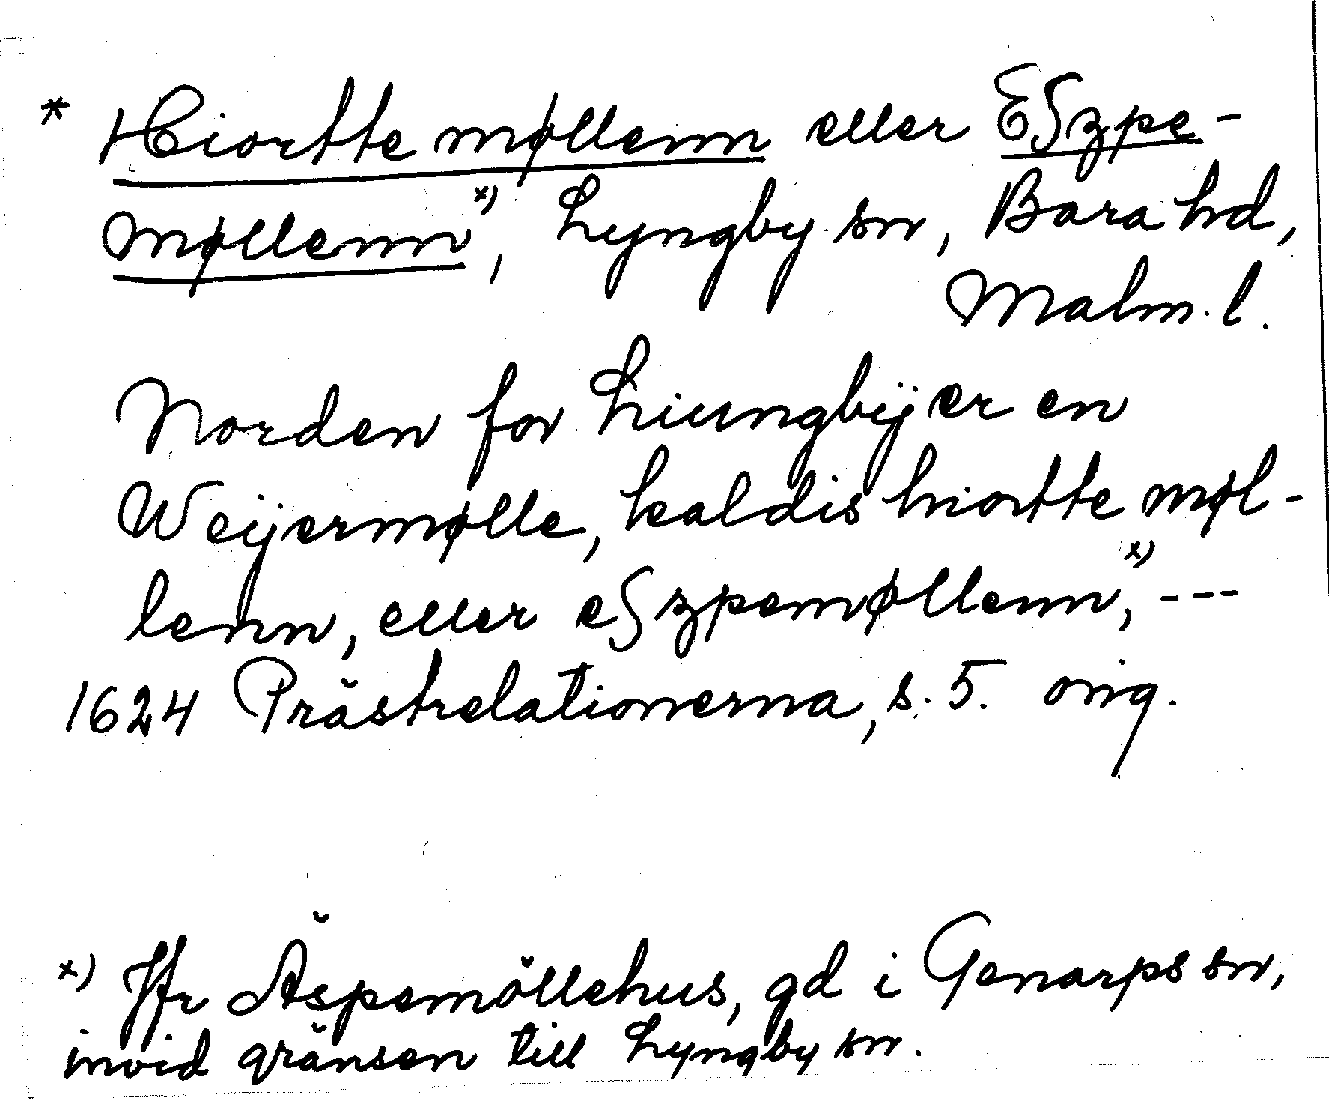 * Hiortte møllenn eller ESzpe-
møllenn x), Lyngby sn, Bara hd,
Malm. l.
Norden for Liungbÿ er en
Weÿermølle, kaldis hiortte møl-
lenn, eller eSzpemøllenn x), ---
1624 Prästrelationerna, s. 5. orig.
x) Jfr Äspemöllehus, gd i Genarps sn,
invid gränsen till Lyngby sn.